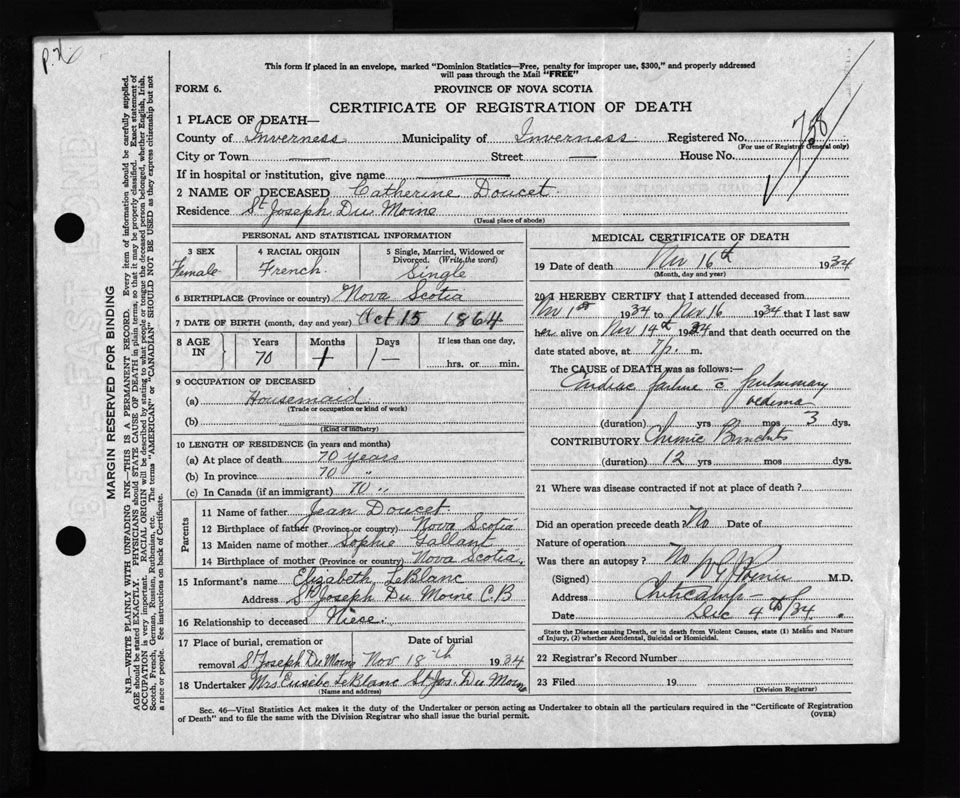 P. N.
This form if placed in an envelope, marked "Dominion Statistics—Free, penalty for improper use, $300," and properly addressed
will pass through the Mail "FREE"
FORM 6.
PROVINCE OF NOVA SCOTIA
CERTIFICATE OF REGISTRATION OF DEATH
MARGIN RESERVED FOR BINDING
N.B.—WRITE PLAINLY WITH UNFADING INK—THIS IS A PERMANENT RECORD. Every item of information should be carefully supplied.
AGE should be stated EXACTLY. PHYSICIANS should STATE CAUSE OF DEATH in plain terms, so that it may be properly classified. Exact statement of
OCCUPATION is very important. RACIAL ORIGIN will be described by stating to what people or tongue the deceased person belonged, whether English, Irish,
Scotch, French, German, Russian, Ruthenian, etc. The terms "AMERICAN" or "CANADIAN" SHOULD NOT BE USED as they express citizenship but not
a race or people. See instructions on back of Certificate.
1 PLACE OF DEATH—
County of Inverness Municipality of Inverness Registered No. 758
(For use of Registrar General only)
City or Town — Street — House No.
If in hospital or institution, give name
2 NAME OF DECEASED Catherine Doucet
Residence St Joseph Du Moine
(Usual place of abode)
PERSONAL AND STATISTICAL INFORMATION
3 SEX
Female
4 RACIAL ORIGIN
French
5 Single, Married, Widowed or
Divorced. (Write the word)
Single
6 BIRTHPLACE (Province or country) Nova Scotia
7 DATE OF BIRTH (month, day and year) Oct 15 1864
8 AGE IN
Years Months Days If less than one day,
70 1 1 hrs. or min.
9 OCCUPATION OF DECEASED
(a) Housemaid
(Trade or occupation or kind of work)
(b)
(Kind of industry)
10 LENGTH OF RESIDENCE (in years and months)
(a) At place of death 70 years
(b) In province 70 "
(c) In Canada (if an immigrant) 70 "
Parents
11 Name of father Jean Doucet
12 Birthplace of father (Province or country) Nova Scotia
13 Maiden name of mother Sophie Gallant
14 Birthplace of mother (Province or country) Nova Scotia,
15 Informant's name Elizabeth LeBlanc
Address St Joseph Du Moine C.B
16 Relationship to deceased Niese.
17 Place of burial, cremation or Date of burial
removal St Joseph Du Moine Nov 18th 1934
18 Undertaker Mrs Eusebe LeBlanc St Jos. Du Moine
(Name and address)
MEDICAL CERTIFICATE OF DEATH
19 Date of death Nov 16th 1934
(Month, day and year)
20 I HEREBY CERTIFY that I attended deceased from
Nov 1st 1934 to Nov 16 1934 that I last saw
her alive on Nov 14th 1934 and that death occurred on
date stated above, at 7 p. m.
The CAUSE of DEATH was as follows:—
Cardiac failure c pulmonary
oedema
(duration) yrs mos 3 dys.
CONTRIBUTORY Chronic Bronchitis
(duration) 12 yrs mos dys.
21 Where was disease contracted if not at place of death?
Did an operation precede death? No Date of
Nature of operation
Was there an autopsy? No
(Signed) M.D.
Address Cheticamp
Date Dec 4th/34
State the Disease causing Death, or in death from Violent Causes, state (1) Means and Nature
of Injury, (2) whether Accidental, Suicidal or Homicidal.
22 Registrar's Record Number
23 Filed 19
(Division Registrar)
Sec. 46—Vital Statistics Act makes it the duty of the Undertaker or person acting as Undertaker to obtain all the particulars required in the "Certificate of Registration
of Death" and to file the same with the Division Registrar who shall issue the burial permit.
(OVER)